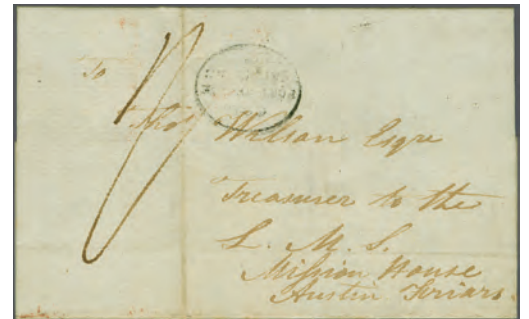 To
Thos Wilson Esqre
Treasurer to the
L. M. S.
Mission House
Austin Friars.